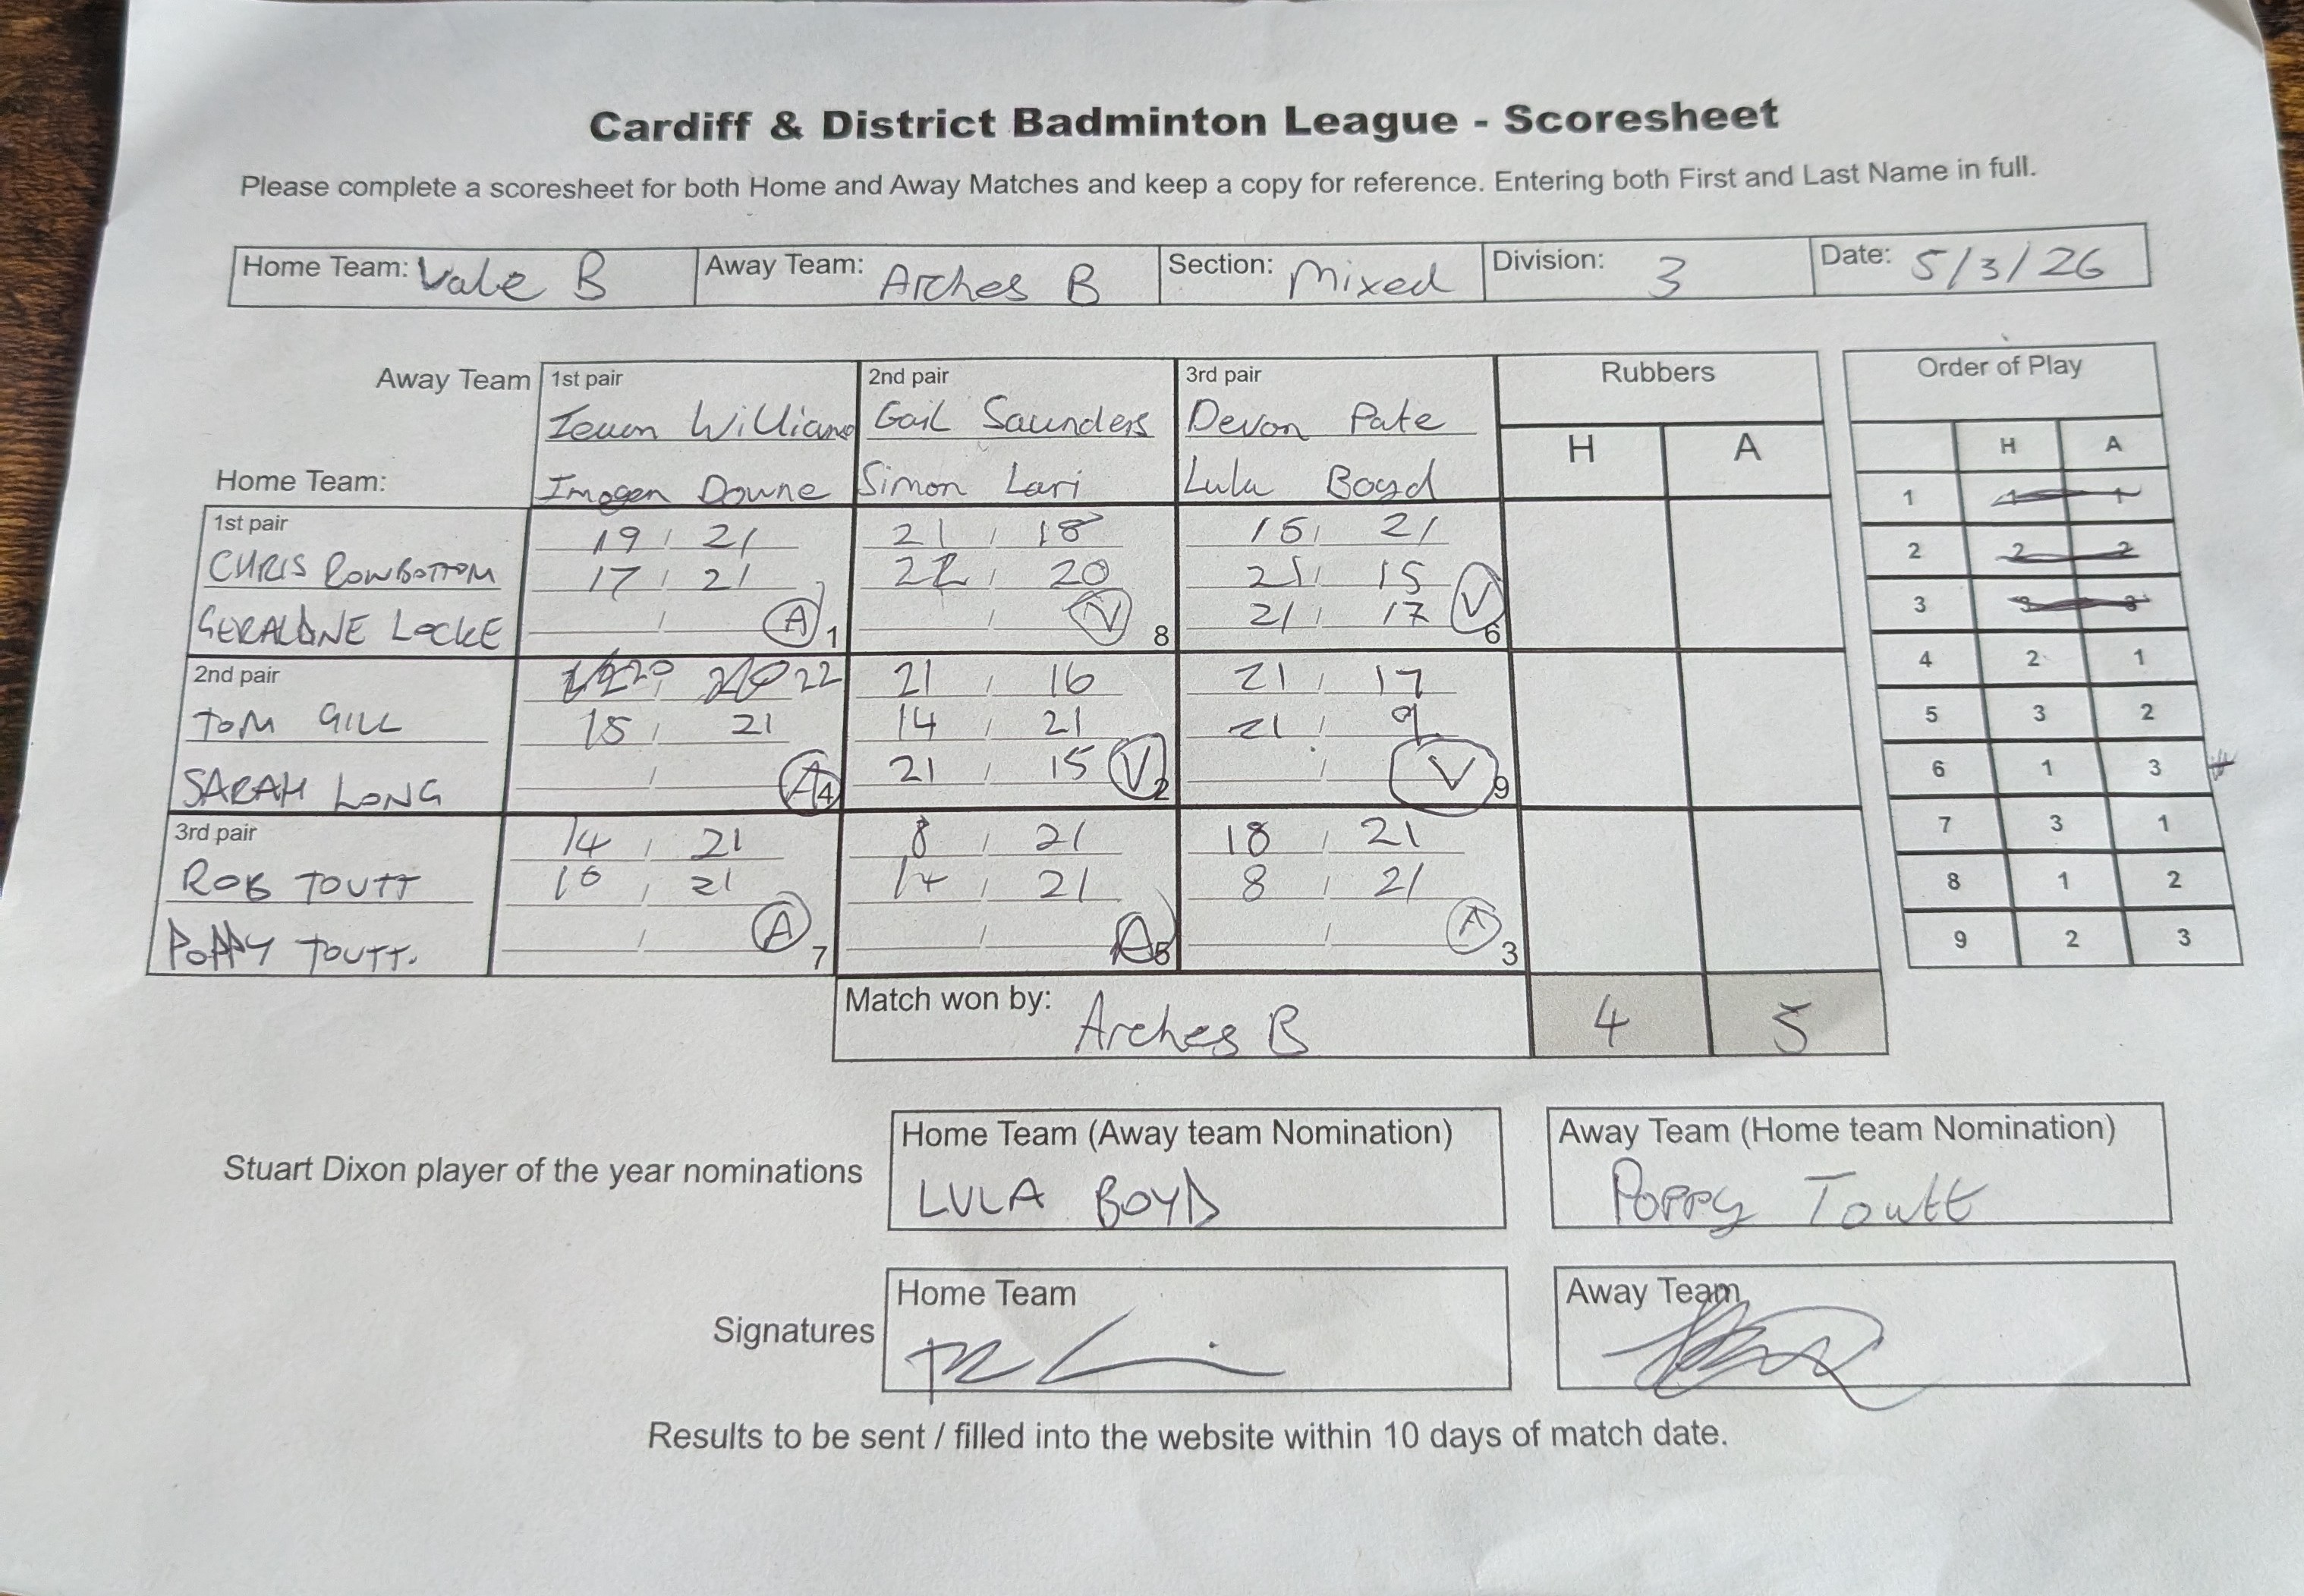 Cardiff & District Badminton League - Scoresheet
Please complete a scoresheet for both Home and Away Matches and keep a copy for reference. Entering both First and Last Name in full.
Home Team: Vale B Away Team: Arches B Section: Mixed Division: 3 Date: 5/3/26
Away Team 1st pair 2nd pair 3rd pair Rubbers Order of Play
Ieuan Williams Gail Saunders Devon Pate
H A H A
Home Team: Imogen Downe Simon Lari Lulu Boyd
1st pair 19 / 21 21 / 18 / 21 1
CHRIS ROWBOTTOM 17 / 21 22 / 20 21 / 15 2 2 2
GERALDINE LOCKE / A 1 / V 8 21 / 17 V 6 3 3 3
2nd pair 20 / 22 21 / 16 21 / 17 4 2 1
TOM GILL 15 / 21 14 / 21 21 / 9 5 3 2
SARAH LONG / A 4 21 / 15 V 2 / V 9 6 1 3
3rd pair 14 / 21 8 / 21 18 / 21 7 3 1
ROB TOUTT 16 / 21 14 / 21 8 / 21 8 1 2
POPPY TOUTT. / A 7 / A 5 / A 3 9 2 3
Match won by: Arches B 4 5
Stuart Dixon player of the year nominations
Home Team (Away team Nomination)
LULA BOYD
Away Team (Home team Nomination)
Poppy Toutt
Signatures
Home Team
Away Team
Results to be sent / filled into the website within 10 days of match date.